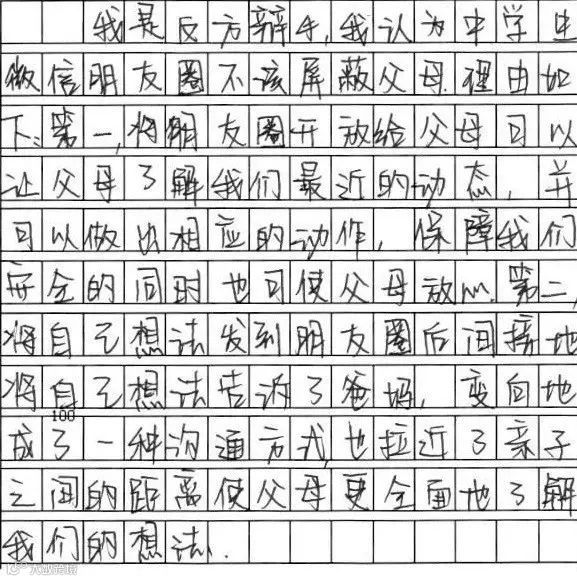 我是反方辩手,我认为中学生
微信朋友圈不该屏蔽父母.理由如
下:第一,将朋友圈开放给父母可以
让父母了解我们最近的动态,并
可以做出相应的动作,保障我们
安全的同时也可使父母放心.第二,
将自己想法发到朋友圈后间接地
将自己想法告诉了爸妈,变向地
100
成了一种沟通方式,也拉近了亲子
之间的距离使父母更全面地了解
我们的想法.